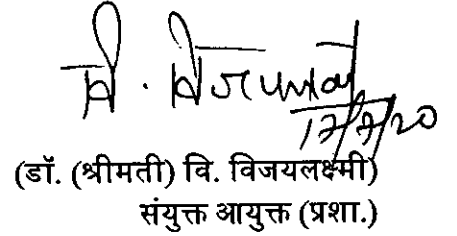 वि. विजयलक्ष्मी
17/7/20
(डॉ. (श्रीमती) वि. विजयलक्ष्मी)
संयुक्त आयुक्त (प्रशा.)